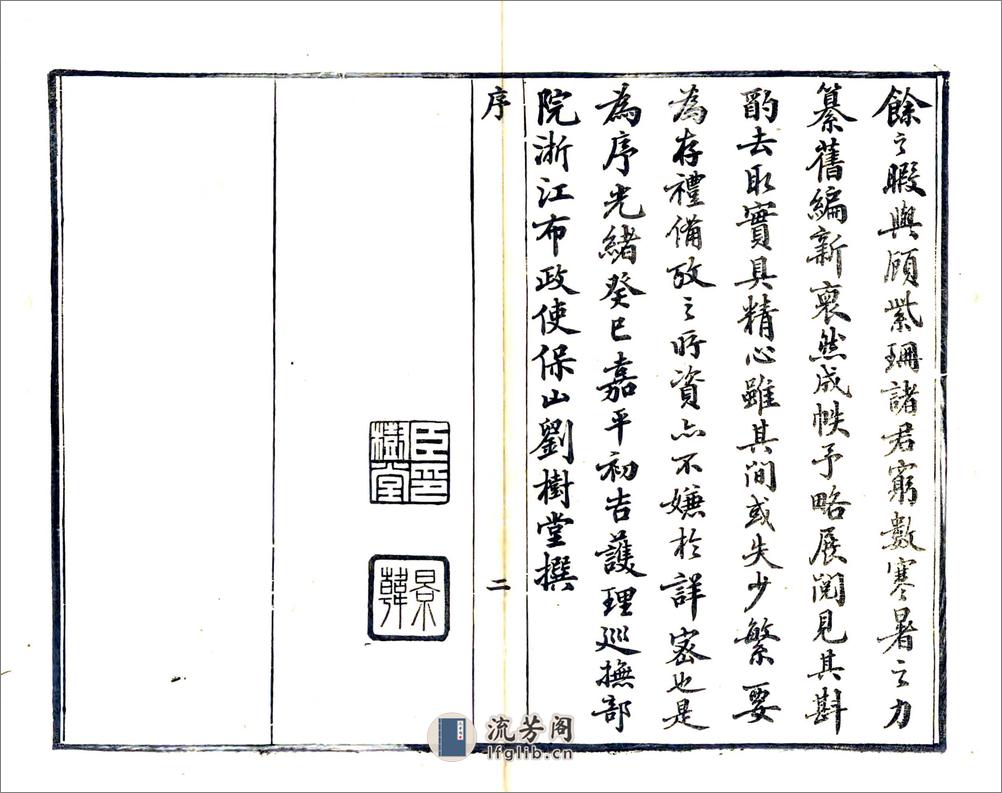 餘之暇與顧紫珊諸君窮數寒暑之力
纂舊編新裒然成帙予略展閱見其斟
酌去取實具精心雖其間或失少繁要
為存禮備攷之所資亦不嫌於詳密也是
為序光緒癸巳嘉平初吉護理巡撫部
院浙江布政使保山劉樹堂撰
序
二
臣劉樹堂
景韓
流芳阁
lfglib.cn